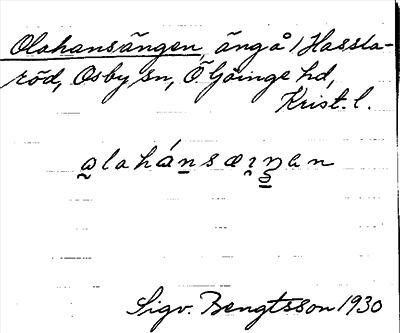 Olahansängen, äng å / Hassla-
röd, Osby sn, Ö. Göinge hd,
Krist. l.
Sigv. Bengtsson 1930